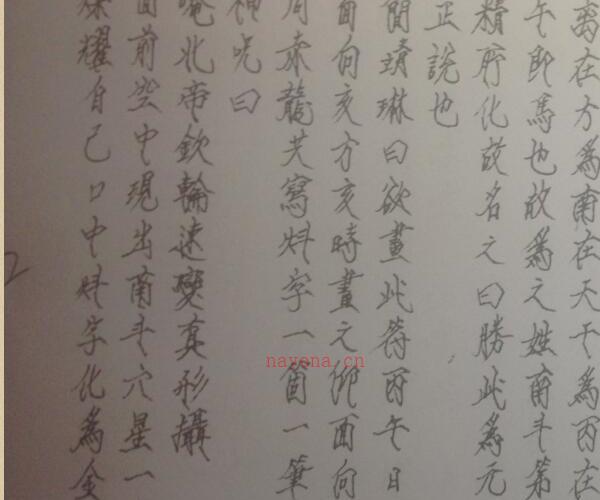 离在方為南在天干為丙在
午即馬也故為之姓南斗第
精所化故名之曰勝此為元
正說也
閒靖琳曰欲畫此符丙午日
面向亥方亥時畫之仰面向
周赤龍共寫炓字一箇一筆
神咒曰
唵北帝欽輪速變真形攝
面前空中現出南斗六星一
耀自己口中炓字化為金
nayona.cn